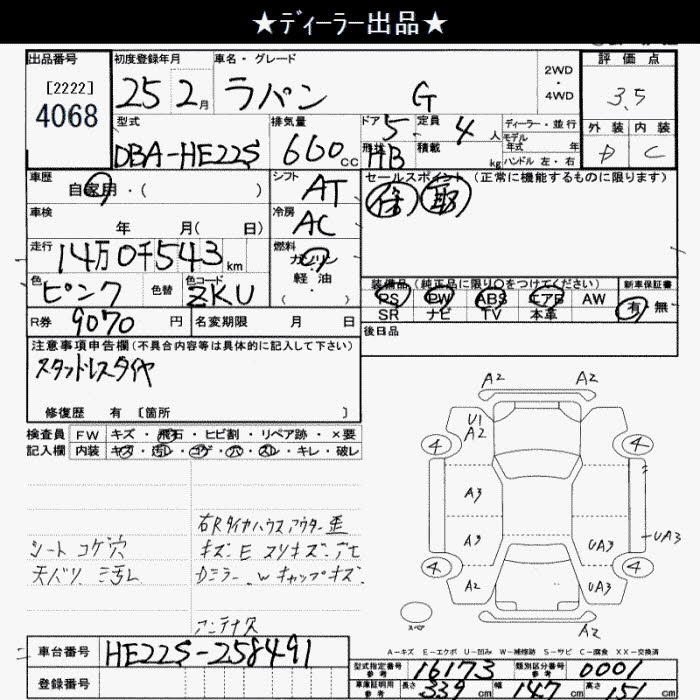 ★ディーラー出品★
出品番号
[2222]
4068
初度登録年月
25 2月
車名・グレード
ラパン G
2WD
・
4WD
評価点
3.5
外装 内装
D C
型式
DBA-HE22S
排気量
660cc
ドア 5
定員 4人
形状 HB
積載 kg
ディーラー・並行
モデル
年式 年
ハンドル 左・右
車歴
自家用・( )
シフト
AT
セールスポイント (正常に機能するものに限ります)
保 取
車検
年 月( 日)
冷房
AC
走行
14万0千543km
燃料
ガソリン
軽油
・( )
色
ピンク
色替
色コード
ZKU
装備品(純正品に限り○をつけてください)
新車保証書
PS PW ABS エアB AW
SR ナビ TV 本革
有・無
R券 9070円
名変期限 月 日
後日品
注意事項申告欄(不具合内容等は具体的に記入して下さい)
スタッドレスタイヤ
修復歴 有 〔箇所 〕
検査員 FW キズ・飛石・ヒビ割・リペア跡・×要
記入欄 内装 キズ・汚レ・コゲ・穴・スレ・キレ・破レ
右Rタイヤハウスアウター歪
シート コゲ穴
キズ・E スリキズ・アセ
天バリ ミ汚レ
Dミラー.wキャップキズ.
アンテナ欠
A2 A2
U1
A2
4 4
A3
A3 UA3
UA3
4 4
A2 A3
A2 A2
スペア
A-キズ E-エクボ U-凹み W-補修跡 S-サビ C-腐食 XX-交換済
車台番号 HE22S-258491
登録番号
型式指定番号
参考
16173
類別区分番号
参考
0001
車庫証明用
参考
長さ 339cm
幅 147cm
高さ 151cm